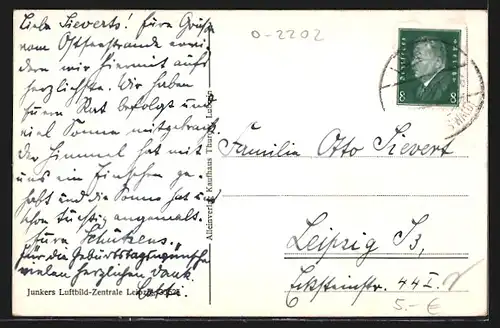 Liebe Sieverts! Eure Grüße
vom Ostseestrande erwi-
dern wir hiermit aufs
herzlichste. Wir haben
Euren Rat befolgt und
viel Sonne mitgebracht.
der Himmel hat mit
uns ein Einsehen ge-
habt und die Sonne hat uns
schon tüchtig angemalt.
Eure Schützens.
Für die Geburtstagswünsche
vielen herzlichen Dank.
Junkers Luftbild-Zentrale Leipzig
Alleinverlag: Kaufhaus
0-2202
Deutsches Reich
8 8
Familie Otto Sievert
Leipzig S3,
Ecksteinstr. 44 I.
5.- €